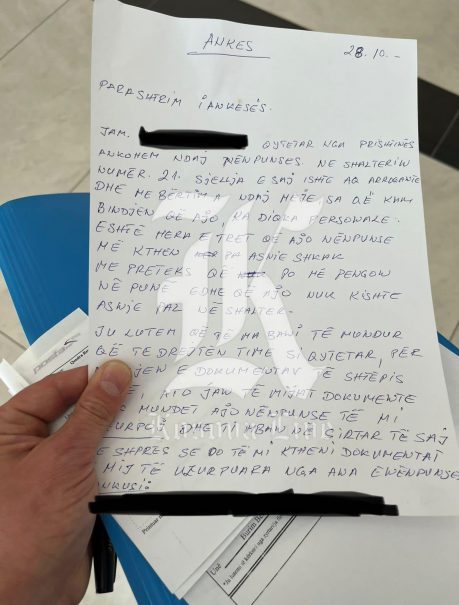 ANKES
28.10.-
PARASHTRIM I ANKESËS.
JAM. QYTETAR NGA PRISHTINËS
ANKOHEM NDAJ NËNPUNSES. NE SHALTERIN
NUMËR. 21. SJELLJA E SAJ ISHTE AQ ARROGANTE
DHE ME BËRTIMA NDAJ MEJE SA QË KAM
BINDJEN QË AJO, KA DIQKA PERSONALE.
ESHTË HERA E TRET QË AJO NËNPUNSE
MË KTHEN PA ASNJE SHKAK
ME PRETEKS QË PO MË PENGON
NË PUNË EDHE QË AJO NUK KISHTE
ASNJE PAL NË SHALTER.
JU LUTEM QË TË MA BANI TË MUNDUR
QË TE DREJTEN TIME SI QYTETAR, PËR
E DOKUMENTAV TË SHTËPIS
ATO JAN TË MIJAT DOKUMENTE
MUNDET AJO NËNPUNSE TË MI
DHE TI MBAN NË SIRTAR TË SAJ
E SHPRES SE DO TË MI KTHENI DOKUMENTAT
MIJ TË UZURPUARA NGA ANA ENËNPUNSE
Burim
Unë